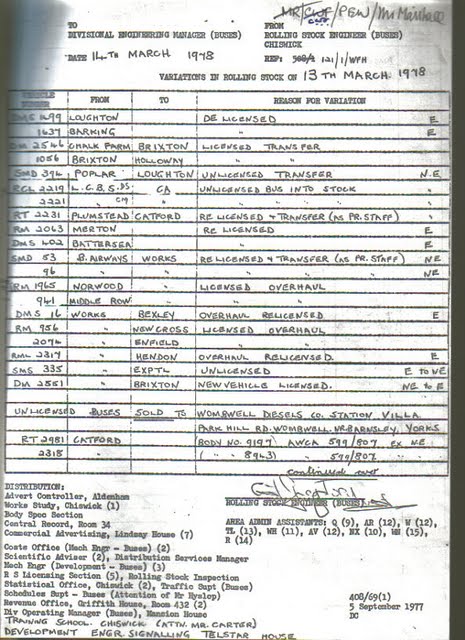 MR/CWF/PEW/Mr Marshall
CNF
TO FROM
DIVISIONAL ENGINEERING MANAGER (BUSES) ROLLING STOCK ENGINEER (BUSES)
CHISWICK
DATE 14TH MARCH 1978 REF: 568/1 121/1/WFH
VARIATIONS IN ROLLING STOCK ON 13TH MARCH 1978
VEHICLE NUMBER FROM TO REASON FOR VARIATION
DMS 1499 LOUGHTON DE LICENSED E
1637 BARKING " E
DM 2546 CHALK FARM BRIXTON LICENSED TRANSFER
1056 BRIXTON HOLLOWAY " "
SMD 394 POPLAR LOUGHTON UNLICENSED TRANSFER N.E
RCL 2219 L.C.B.S. DS CA UNLICENSED BUS INTO STOCK "
2221 " GY " " "
RT 2231 PLUMSTEAD CATFORD RE LICENSED + TRANSFER (AS PR. STAFF) "
RM 2063 MERTON RE LICENSED E
DMS 602 BATTERSEA " E
SMD 53 B. AIRWAYS WORKS RE LICENSED + TRANSFER (AS PR. STAFF) NE
96 " " " " NE
RM 1965 NORWOOD " LICENSED OVERHAUL
941 MIDDLE ROW " " "
DMS 16 WORKS BEXLEY OVERHAUL RELICENSED E
RM 956 " NEW CROSS LICENSED OVERHAUL
2074 " ENFIELD " "
RML 2317 " HENDON OVERHAUL RELICENSED. E
SMS 335 " EXPTL UNLICENSED E TO NE
DM 2551 " BRIXTON NEW VEHICLE LICENSED. NE to E
UNLICENSED BUSES SOLD TO WOMBWELL DIESELS CO. STATION VILLA
PARK HILL RD. WOMBWELL. NR. BARNSLEY, YORKS
RT 2981 CATFORD (BODY NO. 9197) AWCA 599/807 EX NE
2318 " ( " " 8943) " 599/807 "
continued over
DISTRIBUTION:
Advert Controller, Aldenham
ROLLING STOCK ENGINEER (BUSES)
Works Study, Chiswick (1)
Body Spec Section
Central Record, Room 34
Commercial Advertising, Lindsey House (7)
AREA ADMIN ASSISTANTS: Q (9), AR (12), W (12),
TL (13), WH (11), AV (12), HX (10), WN (15),
R (14)
Costs Office (Mech Engr - Buses) (2)
Scientific Adviser (2), Distribution Services Manager
Mech Engr (Development - Buses) (3)
R S Licensing Section (5), Rolling Stock Inspection
Statistical Office, Chiswick (2), Traffic Supt (Buses)
Schedules Supt - Buses (Attention of Mr Hyslop)
Revenue Office, Griffith House, Room 432 (2)
Div Operating Manager (Buses), Mansion House
408/69(1)
5 September 1977
DC
TRAINING SCHOOL. CHISWICK (ATTN. MR. CARTER)
DEVELOPMENT ENGR. SIGNALLING TELSTAR HOUSE